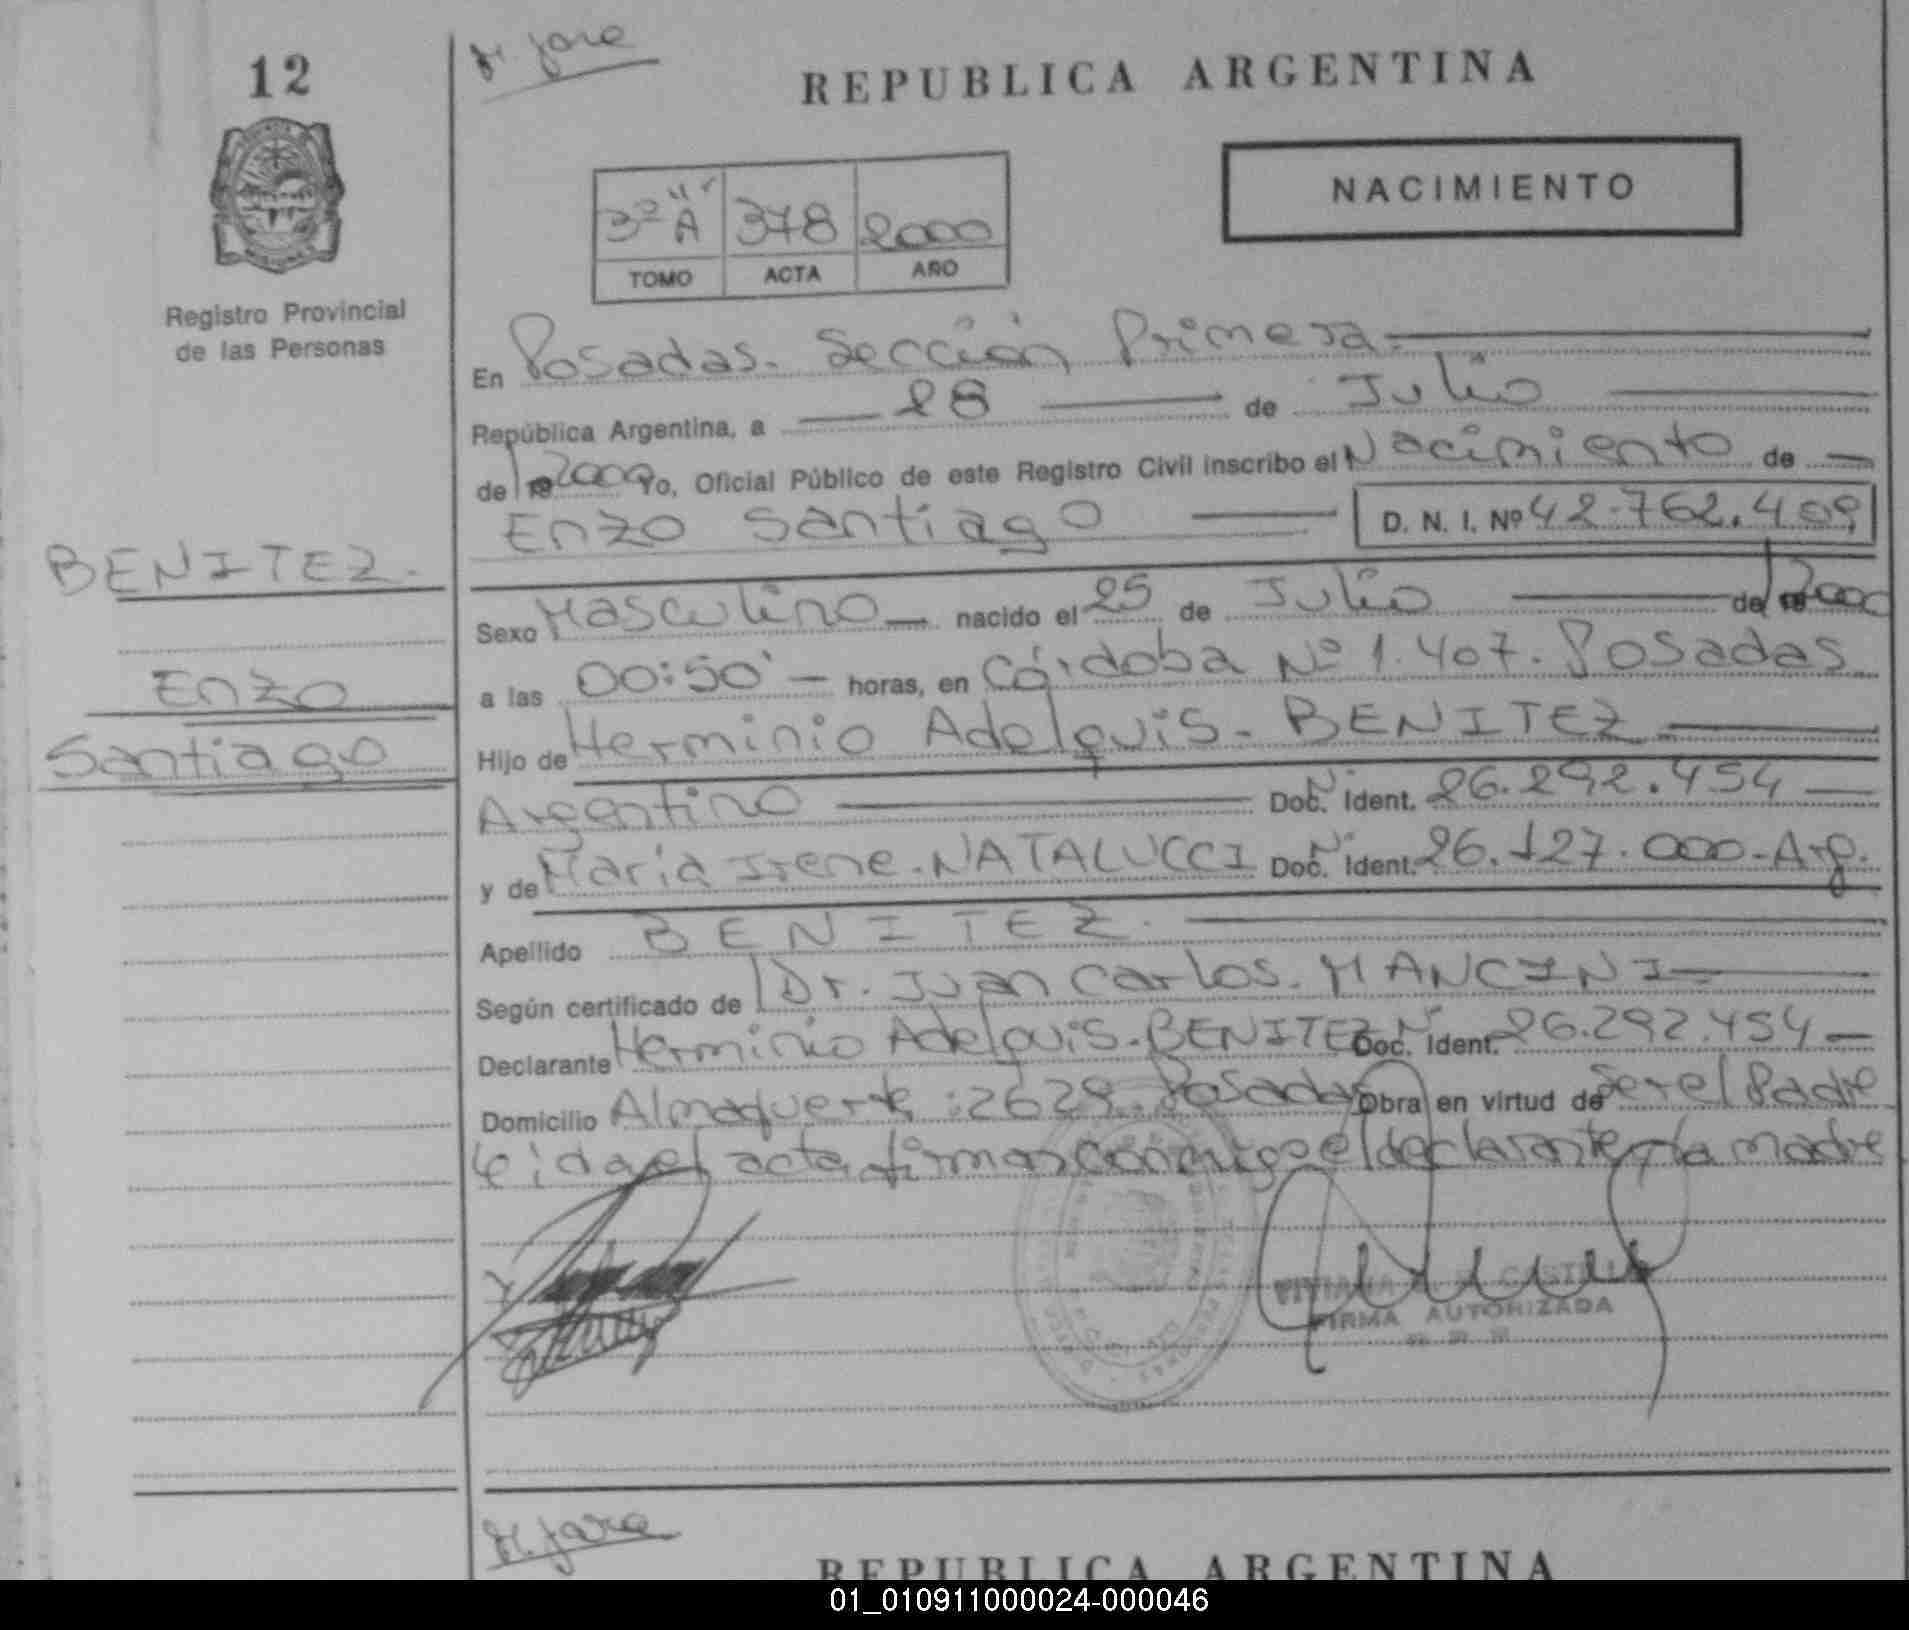 12
Registro Provincial
de las Personas
BENITEZ.
Enzo
Santiago
M. Jara
REPUBLICA ARGENTINA
NACIMIENTO
3º "A" 378 2000
TOMO ACTA AÑO
En Posadas. Sección Primera.
República Argentina, a 28 de Julio
de 2000 Yo, Oficial Público de este Registro Civil inscribo el Nacimiento de
Enzo Santiago D. N. I. Nº 42.762.409
Sexo Masculino nacido el 25 de Julio de 2000
a las 00:50' horas, en Córdoba Nº 1.407. Posadas
Hijo de Herminio Adelquis. BENITEZ.
Argentino Doc. Nº Ident. 26.292.454
y de Maria Irene. NATALUCCI Doc. Nº Ident. 26.127.000-Arg.
Apellido BENITEZ.
Según certificado de Dr. Juan Carlos. MANCINI
Declarante Herminio Adelquis. BENITEZ Doc. Nº Ident. 26.292.454
Domicilio Almaquerte: 2629. Posadas Obra en virtud de Ser el Padre
Leida el acta firman conmigo el declarante y la madre
FIRMA AUTORIZADA
M. Jara
REPUBLICA ARGENTINA
01_010911000024-000046